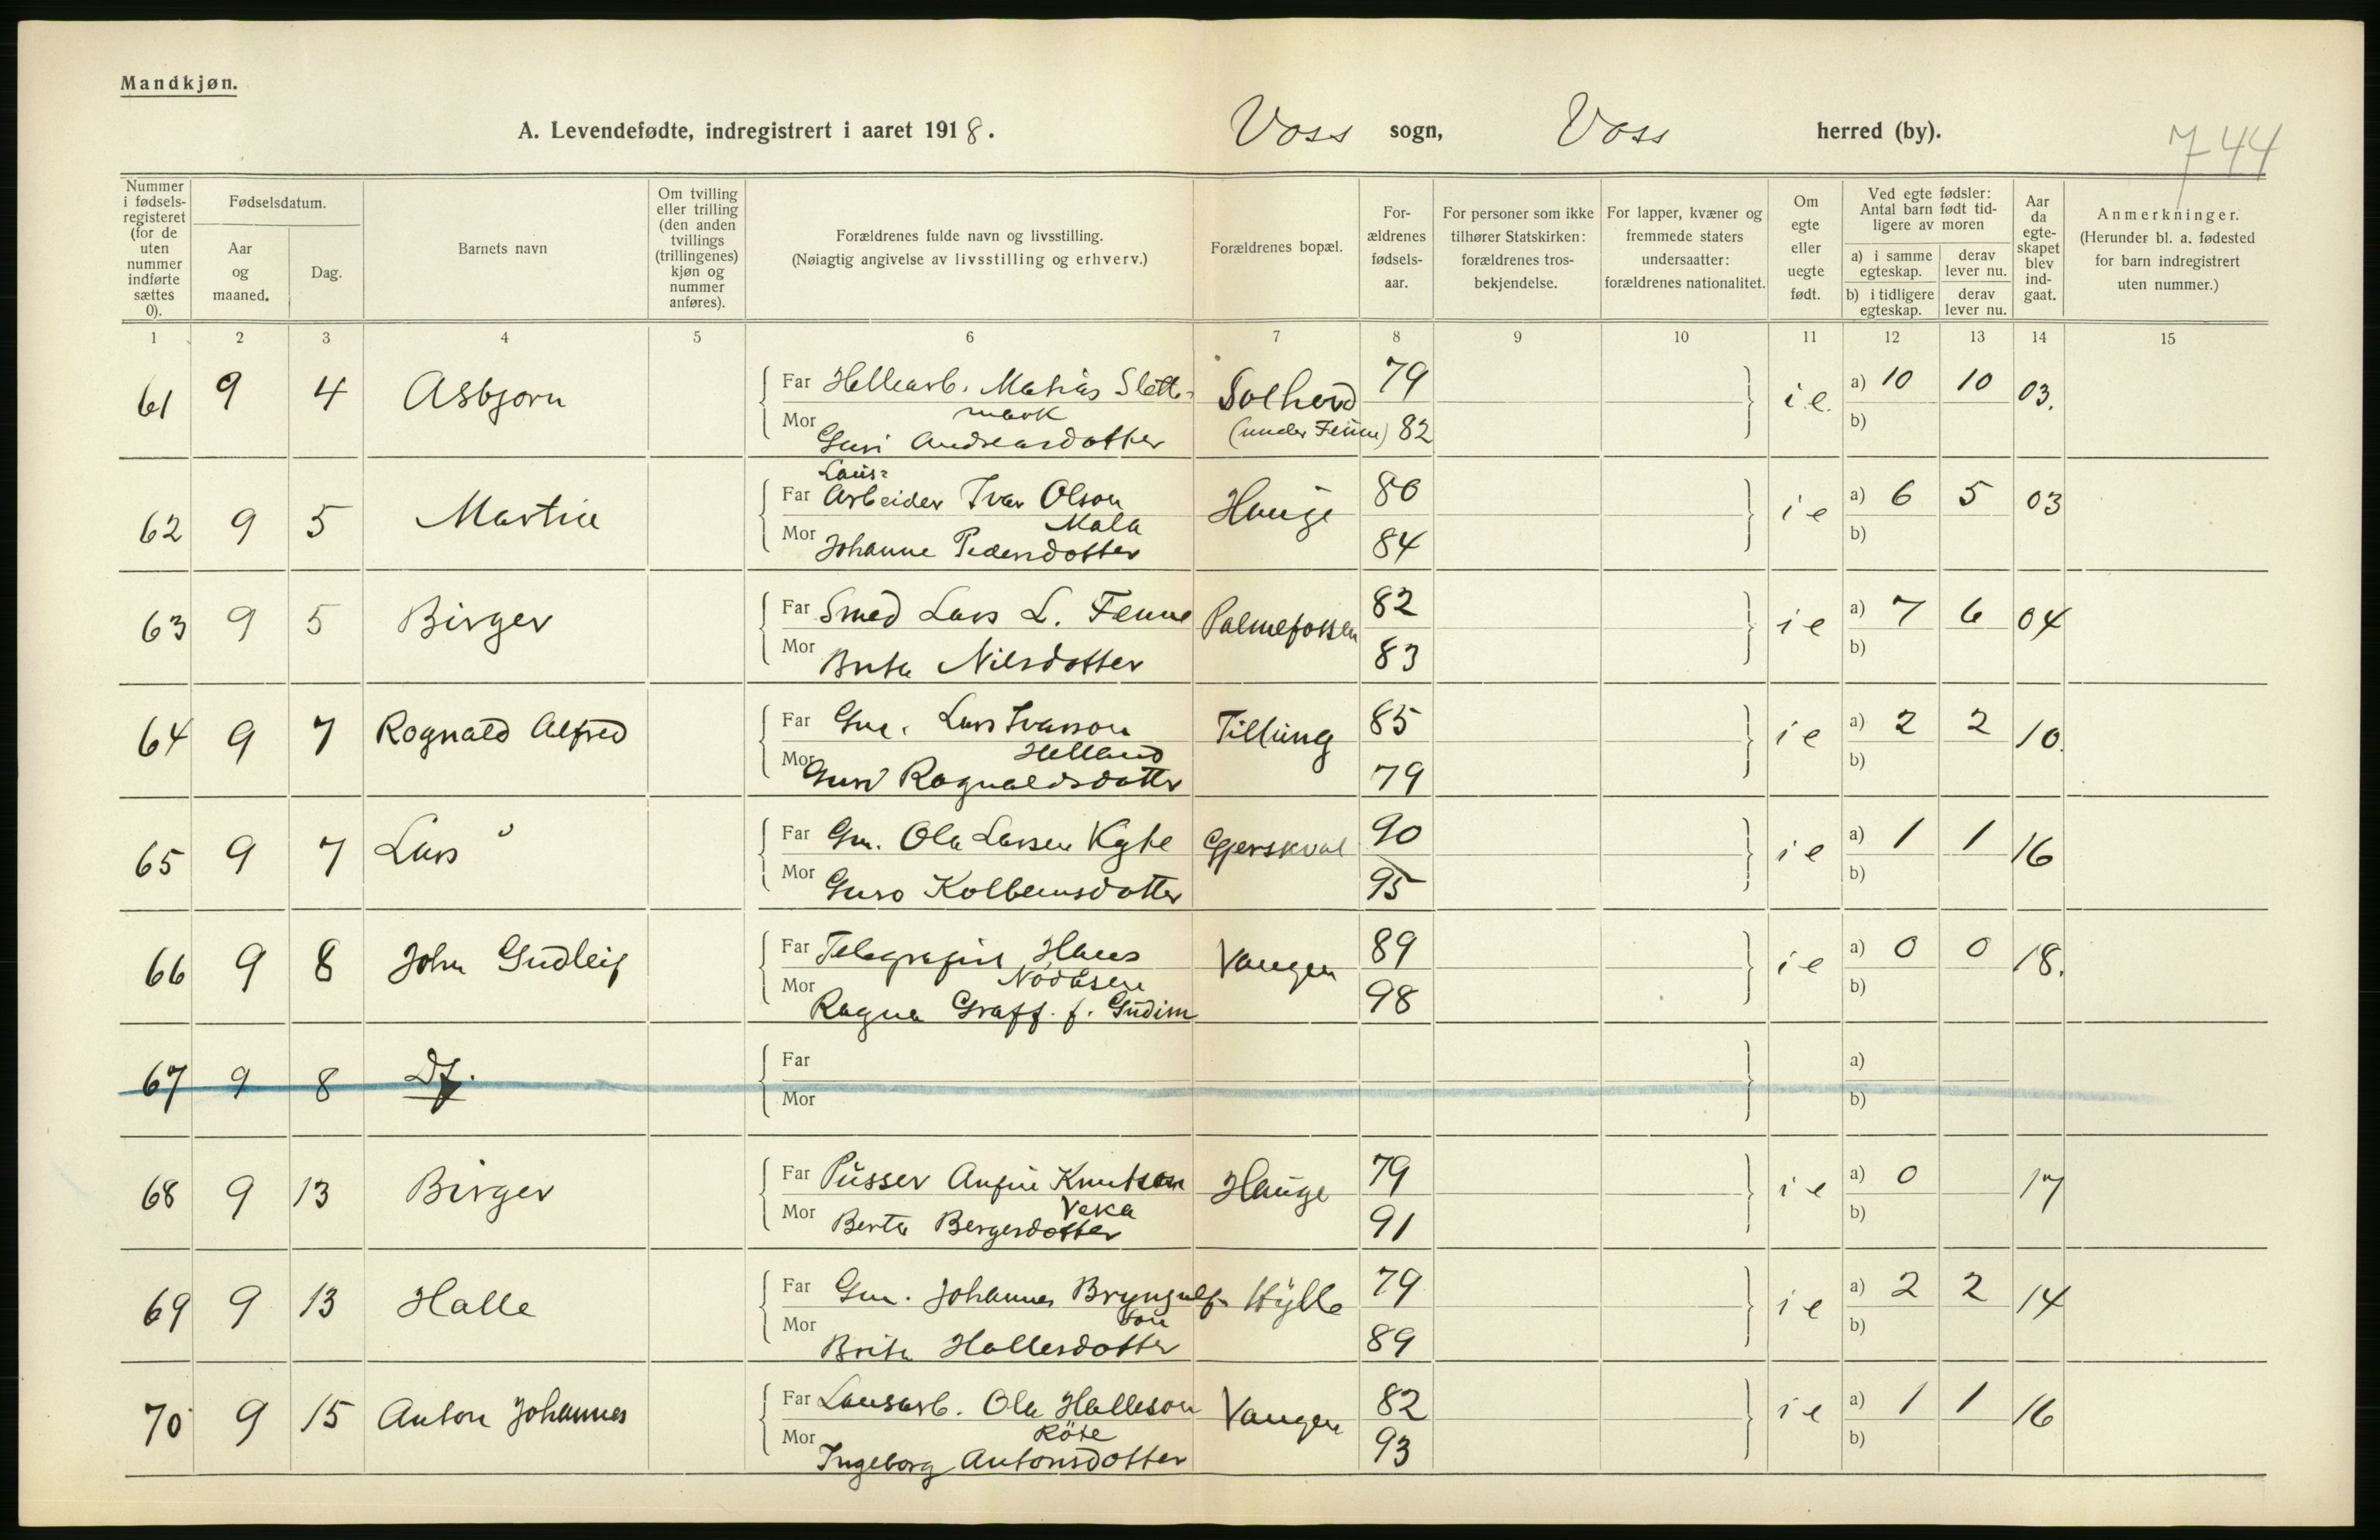 Mandkjøn.
A. Levendefødte, indregistrert i aaret 1918. Voss sogn, Voss herred (by).
744
Nummer i fødselsregisteret (for de uten nummer indførte sættes 0).
Fødselsdatum.
Aar og maaned.
Dag.
Barnets navn
Om tvilling eller trilling (den anden tvillings (trillingenes) kjøn og nummer anføres).
Forældrenes fulde navn og livsstilling.
(Nøiagtig angivelse av livsstilling og erhverv.)
Forældrenes bopæl.
Forældrenes fødselsaar.
For personer som ikke tilhører Statskirken: forældrenes trosbekjendelse.
For lapper, kvæner og fremmede staters undersaatter: forældrenes nationalitet.
Om egte eller uegte født.
Ved egte fødsler: Antal barn født tidligere av moren
a) i samme egteskap.
derav lever nu.
b) i tidligere egteskap.
derav lever nu.
Aar da egteskapet blev indgaat.
Anmerkninger.
(Herunder bl. a. fødested for barn indregistrert uten nummer.)
1 2 3 4 5 6 7 8 9 10 11 12 13 14 15
61 9 4 Asbjorn Far Hellearb. Matias Slette- Solheid 79 i e. a) 10 10 03.
mark
Mor Guri Andreasdotter (under Fenne) 82 b)
Laus-
62 9 5 Martin Far Arbeider Ivar Olson Hauge 80 i e a) 6 5 03
Mala
Mor Johanne Pedersdotter 84 b)
63 9 5 Birger Far Smed Lars L. Fenne Palmefossen 82 i e a) 7 6 04
Mor Brita Nilsdotter 83 b)
64 9 7 Rognald Alfred Far Gm. Lars Ivarson Tillung 85 i e a) 2 2 10.
Helland
Mor Guri Rognaldsdotter 79 b)
65 9 7 Lars Far Gm. Ola Larsen Kyte Gjerskval 90 i e a) 1 1 16
Mor Guro Kolbeinsdotter 95 b)
66 9 8 John Gudleif Far Telegrafist Hans Vangen 89 i e a) 0 0 18.
Mor Ragna Graff. f. Gudim 98 b)
67 9 8 Df. Far a)
Mor b)
68 9 13 Birger Far Pusser Anfin Knutson Hauge 79 i e a) 0 17
Veka
Mor Berta Bergesdotter 91 b)
69 9 13 Halle Far Gm. Johannes Bryngulf- Hylle 79 i e a) 2 2 14
son
Mor Brita Hallesdotter 89 b)
70 9 15 Anton Johannes Far Lausarb. Ola Halleson Vangen 82 i e a) 1 1 16
Röte
Mor Ingeborg Antonsdotter 93 b)